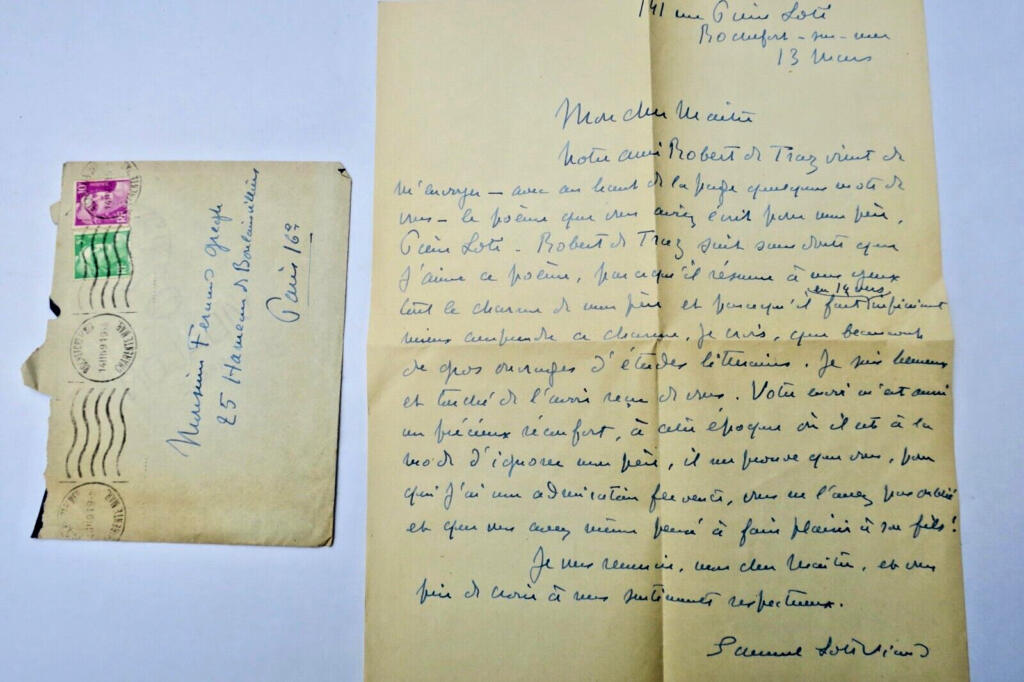 Monsieur Fernand Gregh
25 Hameau de Boulainvilliers
Paris 16e
141 rue Pierre Loti
Rochefort-sur-mer
13 Mars
Mon cher Maître
Notre ami Robert de Traz vient de
m'envoyer – avec au haut de la page quelques mots de
vous – le poème que vous aviez écrit pour mon père,
Pierre Loti. Robert de Traz sait sans doute que
j'aime ce poème, parce qu'il résume à mes yeux
en 14 vers
tout le charme de mon père et parce qu'il fait infiniment
mieux comprendre ce charme, je crois, que beaucoup
de gros ouvrages d'études littéraires. Je suis heureux
et touché de l'avoir reçu de vous. Votre envoi m'est aussi
un précieux réconfort, à cette époque où il est à la
mode d'ignorer mon père, il me prouve que vous, pour
qui j'ai une admiration fervente, vous ne l'avez pas oublié
et que vous avez même pensé à faire plaisir à son fils!
Je vous remercie, mon cher Maître, et vous
prie de croire à mes sentiments respectueux.
Samuel Loti-Viaud